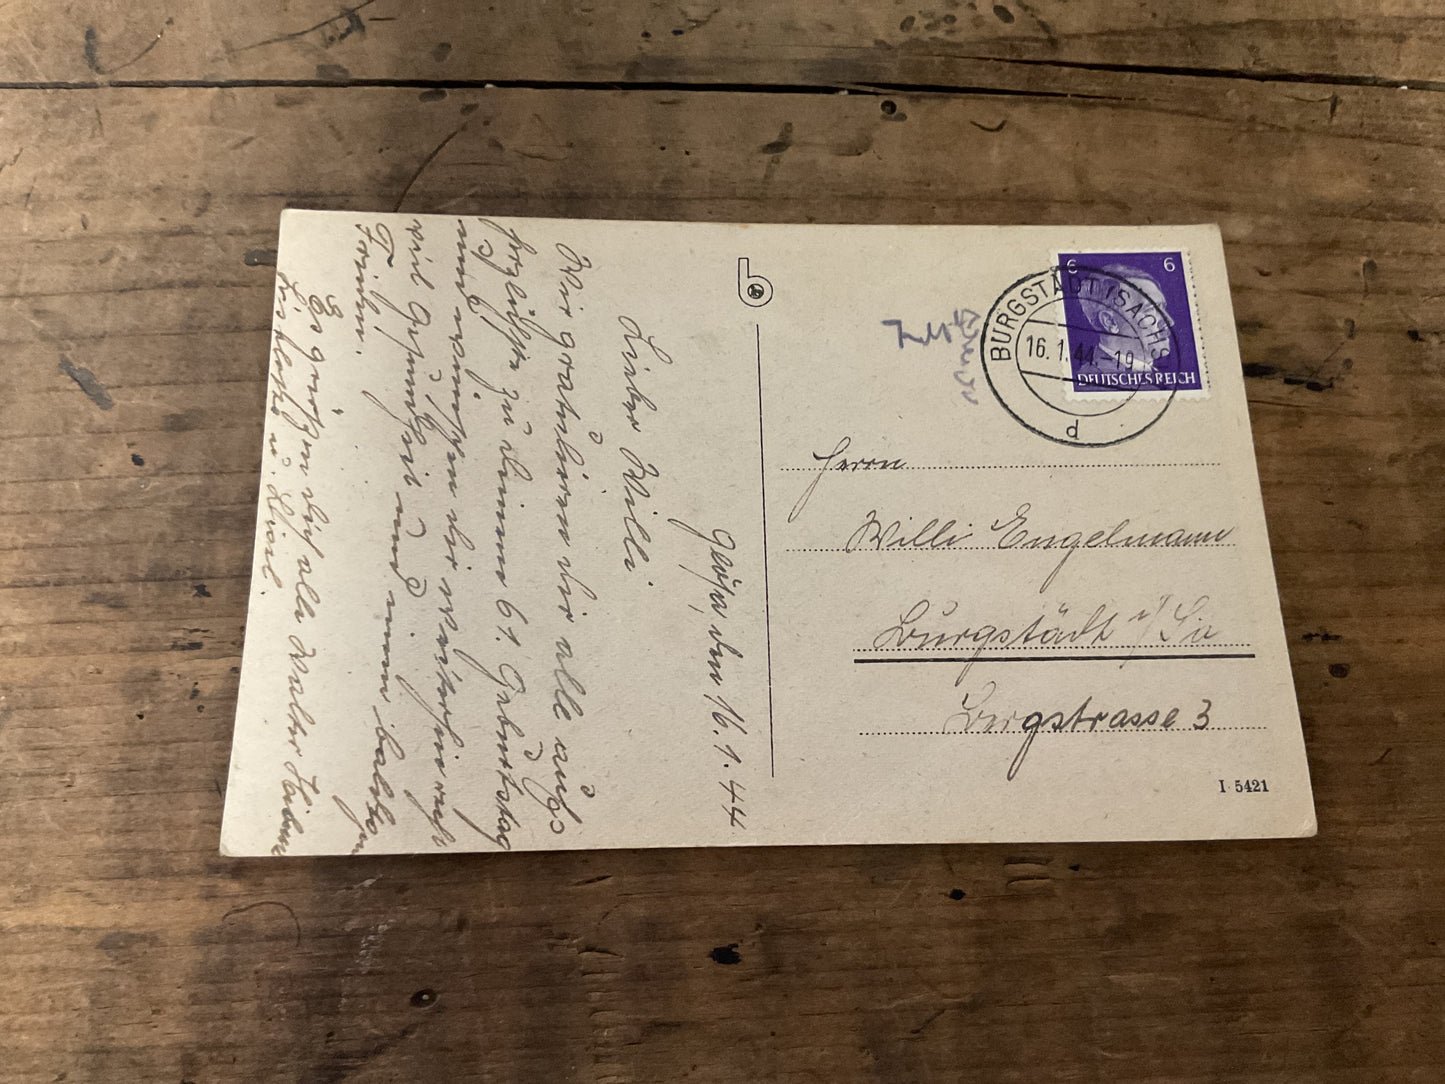 Glösa, den 16.1.44
Lieber Willi
Wir gratulieren dir alle aufs
herzlichste zu deinem 61. Geburtstag
und wünschen dir weiterhin recht
viel Gesundheit und einen baldigen
Frieden.
Es grüßen dich alle Walter
Liselotte u.
6 6
DEUTSCHES REICH
BURGSTÄDT (SACHS)
16.1.44.-19
d
Herrn
Willi Engelmann
Burgstädt i/Sa
Burgstrasse 3
I 5421